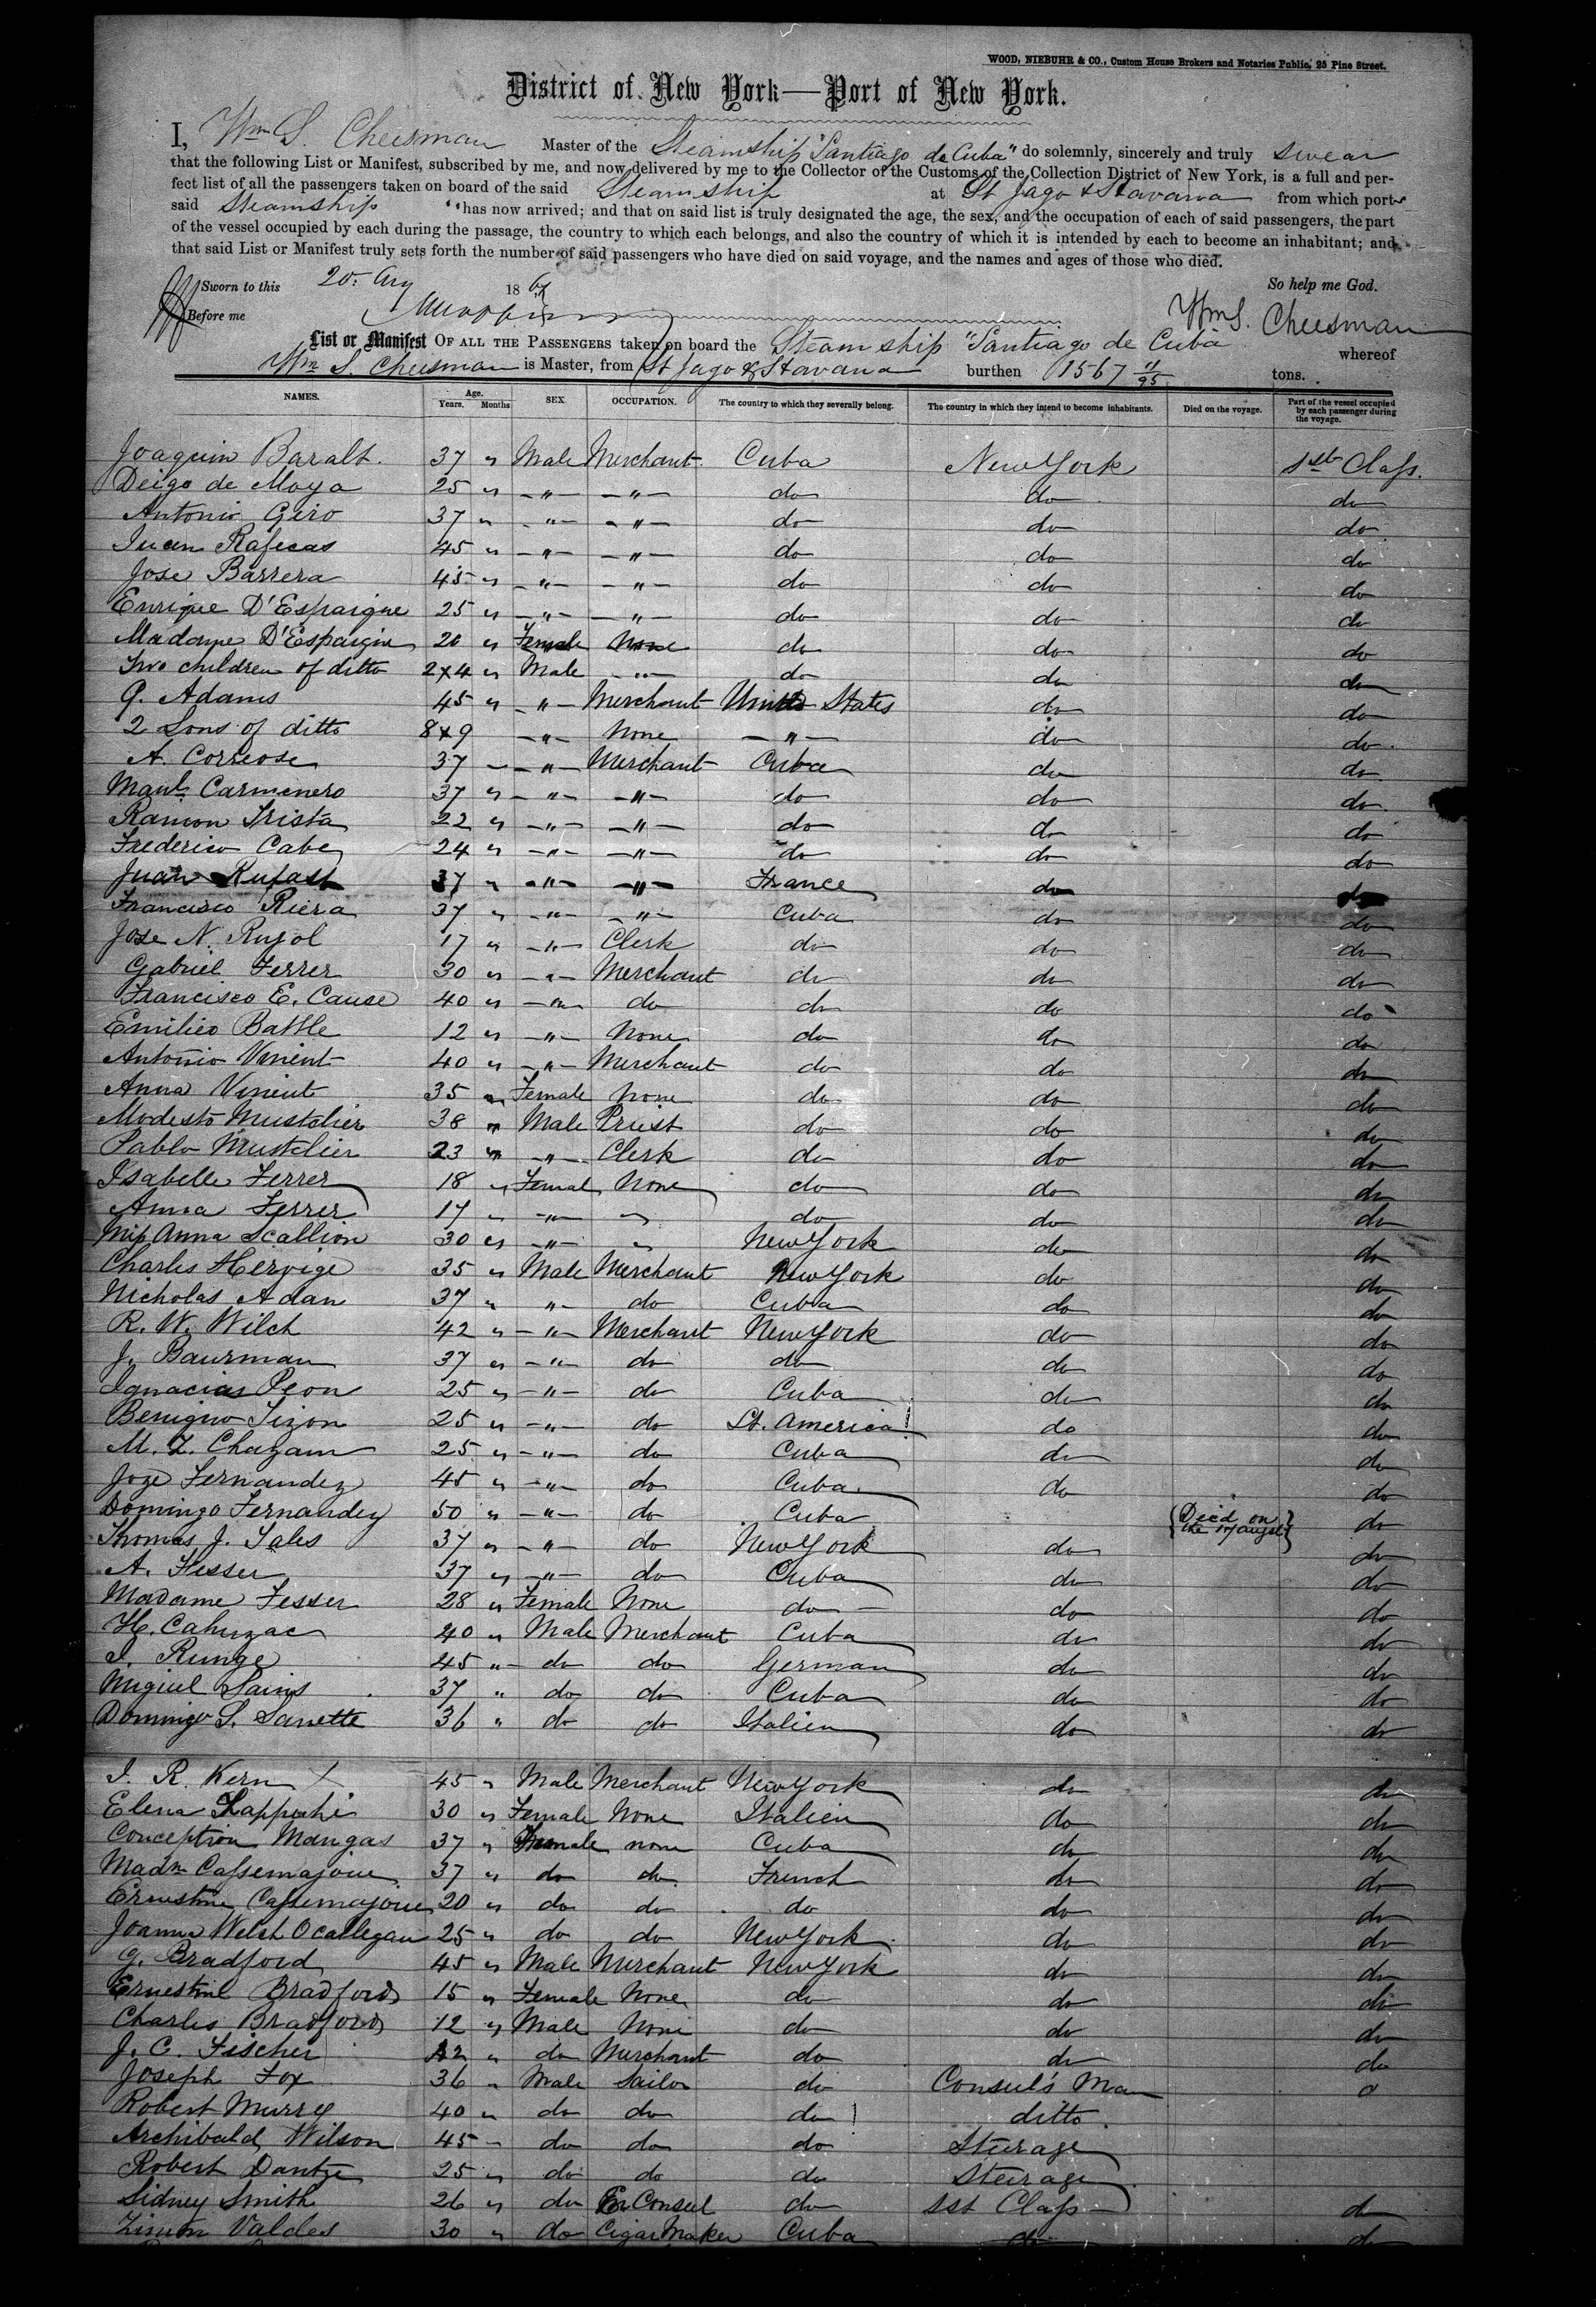 WOOD, NIEBUHR & CO., Custom House Brokers and Notaries Public, 25 Pine Street.
District of New York—Port of New York.
I, Wm S. Cheesman Master of the Steamship "Santiago de Cuba" do solemnly, sincerely and truly swear
that the following List or Manifest, subscribed by me, and now delivered by me to the Collector of the Customs of the Collection District of New York, is a full and per-
fect list of all the passengers taken on board of the said Steamship at St Jago & Havana from which port
said Steamship has now arrived; and that on said list is truly designated the age, the sex, and the occupation of each of said passengers, the part
of the vessel occupied by each during the passage, the country to which each belongs, and also the country of which it is intended by each to become an inhabitant; and
that said List or Manifest truly sets forth the number of said passengers who have died on said voyage, and the names and ages of those who died.
Sworn to this 20. Aug 1867 So help me God.
Before me Wm S. Cheesman
List or Manifest OF ALL THE PASSENGERS taken on board the Steam ship "Santiago de Cuba whereof
Wm S. Cheesman is Master, from St Jago & Havana burthen 1567 11/95 tons.
NAMES. Age. Years. Months SEX OCCUPATION. The country to which they severally belong. The country in which they intend to become inhabitants. Died on the voyage. Part of the vessel occupied by each passenger during the voyage.
Joaquin Baralt. 37 " Male Merchant. Cuba New York 1st Class.
Deigo de Moya 25 " -"- -"- do do do
Antonio Giro 37 " -"- -"- do do do
Juan Rafecas 45 " -"- -"- do do do
Jose Barrera 45 " -"- -"- do do do
Enrique D'Espaigne 25 " -"- -"- do do do
Madame D'Espaigne 20 " Female None do do do
Two children of ditto 2 & 4 " Male -"- do do do
G. Adams 45 " -"- Merchant United States do do
2 Sons of ditto 8 & 9 -"- None -"- do do
A. Correose 37 -"- Merchant Cuba do do
Manl Carmenero 37 " -"- -"- do do do
Ramon Trista 22 " -"- -"- do do do
Frederico Cabez 24 " -"- -"- do do do
Juan Rufast 37 " -"- -"- France do do
Francisco Riera 37 " -"- -"- Cuba do do
Jose N. Rujol 17 " -"- Clerk do do do
Gabriel Ferrer 30 " -"- Merchant do do do
Francisco E. Cause 40 " -"- do do do do
Emilieo Battle 12 " -"- None do do do
Antonio Vinent 40 " -"- Merchant do do do
Anna Vinent 35 " Female None do do do
Modesto Mustelier 38 " Male Priest do do do
Pablo Mustelier 23 " -"- Clerk do do do
Isabelle Ferrer 18 " Female None do do do
Anna Ferrer 17 " -"- " do do do
Miss Anna Scallion 30 " -"- " New York do do
Charles Hervige 35 " Male Merchant New York do do
Nicholas Adan 37 " -"- do Cuba do do
R. W. Wilch 42 " -"- Merchant New York do do
J. Baurman 37 " -"- do do do do
Ignacias Peon 25 " -"- do Cuba do do
Benigno Tizon 25 " -"- do St. America do do
M. Z. Chazam 25 " -"- do Cuba do do
Joze Fernandez 45 " -"- do Cuba do do
Domingo Fernandez 50 " -"- do Cuba {Died on the 17 Augst} do
Thomas J. Sales 37 " -"- do New York do do
A. Fesser 37 " -"- do Cuba do do
Madame Fesser 28 " Female None do do do
H. Cahuzac 40 " Male Merchant Cuba do do
I. Runge 45 " do do German do do
Miguel Sains 37 " do do Cuba do do
Domingo S. Sanette 36 " do do Italien do do
I. R. Kern 45 " Male Merchant New York do do
Elena Zappuchi 30 " Female None Italien do do
Conception Mangas 37 " Female none Cuba do do
Madm Cassemajoue 37 " do do French do do
Ernestine Cassemajoue 20 " do do do do do
Joanna Welsh Ocallegan 25 " do do New York do do
G. Bradford 45 " Male Merchant New York do do
Ernestine Bradford 15 " Female None do do do
Charles Bradford 12 " Male None do do do
J. C. Fischer 42 " do Merchant do do do
Joseph Fox 36 " Male Sailor do Consul's Man d
Robert Murrey 40 " do do do ditto
Archibald Wilson 45 " do do do Steerage
Robert Dantze 25 " do do do Steerage
Sidney Smith 26 " do Ex Consul do 1st Class do
Zimon Valdes 30 " do Cigar Maker Cuba do do